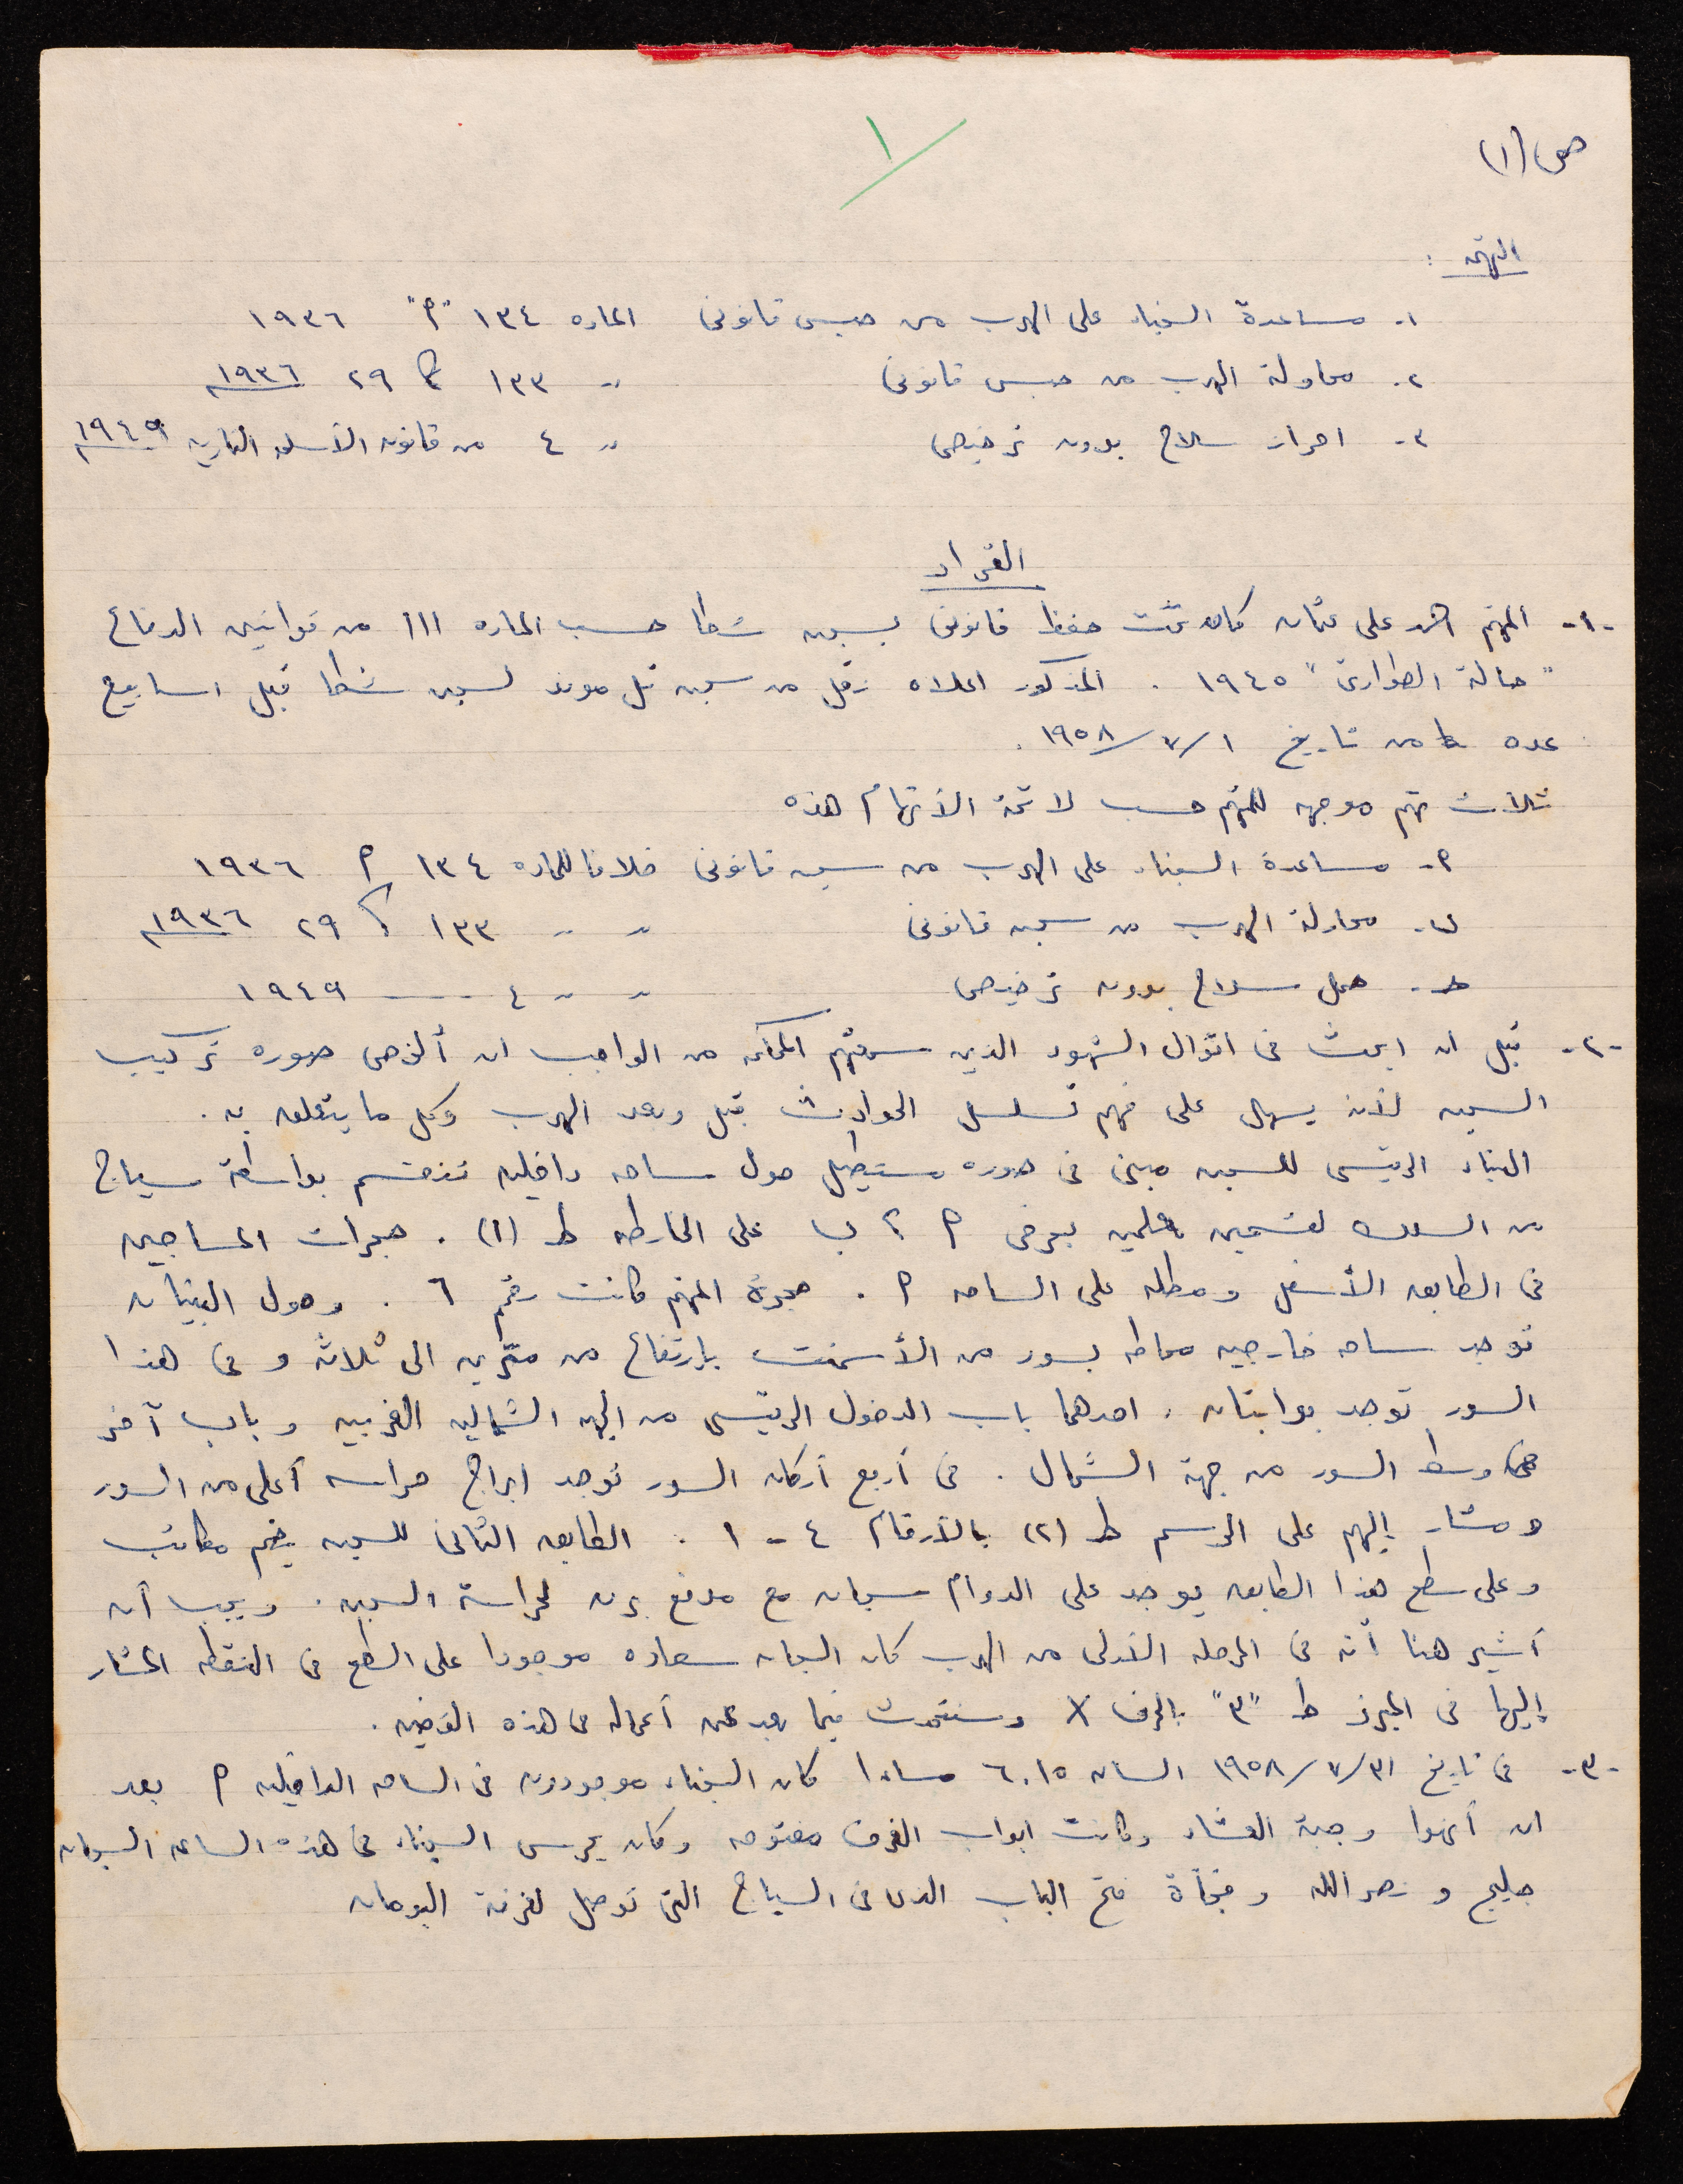 ص (١)
١
التهم :
١- مساعدة السجناء على الهرب من حبس قانوني الماده ١٣٤ "م" ١٩٣٦
٢- محاولة الهرب من حبس قانوني " ١٣٣ ٢٩ ١٩٣٦
٣- احراز سلاح بدون ترخيص " ٤ من قانون الأسلحه الناريه ١٩٤٩
القرار
-١- المتهم احمد علي عثمان كان تحت حفظ قانوني بسجن شطا حسب الماده ١١١ من قوانين الدفاع
"حالة الطوارئ" ١٩٤٥ . المذكور اعلاه نقل من سجن تل موند لسجن شطا قبل اسابيع
عده من تاريخ ١/٧/١٩٥٨.
ثلاث تهم موجهه للمتهم حسب لائحة الأتهام هذه
م- مساعدة السجناء على الهرب من سجن قانوني خلافا للماده ١٣٤ م ١٩٣٦
ب- محاولة الهرب من سجن قانوني " " ١٣٣ ٢٩ ١٩٣٦
ج- حمل سلاح بدون ترخيص " " ٤ ــ ١٩٤٩
-٢- قبل ان ابحث في اقوال الشهود الذين سمعتهم المحكمه من الواجب ان ألخص صوره تركيب
السجن لأن يسهل على فهم تسلسل الحوادث قبل وبعد الهرب وكل ما يتعلق به.
البناء الرئيسي للسجن مبني في صوره مستطيل حول ساحه داخليه تنقسم بواسطة سياج
من السلك لقسمين بحرفي م ، ب على الخارطه ط (١) . حجرات المساجين
في الطابق الأسفل ومطله على الساحه م . حجرة المتهم كانت رقم ٦ . وحول البنيان
توجد ساحه خارجيه محاطه بسور من الأسمنت بإرتفاع من مترين الى ثلاثة و في هذا
السور توجد بوابتان . احدهما باب الدخول الرئيسي من الجهه الشماليه الغربيه وباب آخر
في وسط السور من جهة الشمال . في أربع أركان السور توجد ابراج حراسه أعلى من السور
ومشار إليهم على الرسم ط (٢) بالأرقام ٤ - ١ . الطابق الثاني للسجن يضم مكاتب
وعلى سطح هذا الطابق يوجد على الدوام سجان مع مدفع برن لحراسة السجن . ويجب أن
أشير هنا أنه في المرحله الأولى من الهرب كان السجان سعاده موجودا على السطح في النقطه المشار
إليها في المبرز ط "٣" بالحرف X وسنتحدث فيما بعد عن أعماله في هذه القضيه .
-٣- في تاريخ ٣١/٧/١٩٥٨ الساعه ٦.١٥ مساءا كان السجناء موجودون في الساحه الداخليه م بعد
ان أنهوا وجبة العشاء وكانت ابواب الغرف مفتوحه وكان يحرس السجناء في هذه الساعه السجانان
جليج و نصرالله وفجأة فتح الباب الذي في السياج التي توصل لغرفة